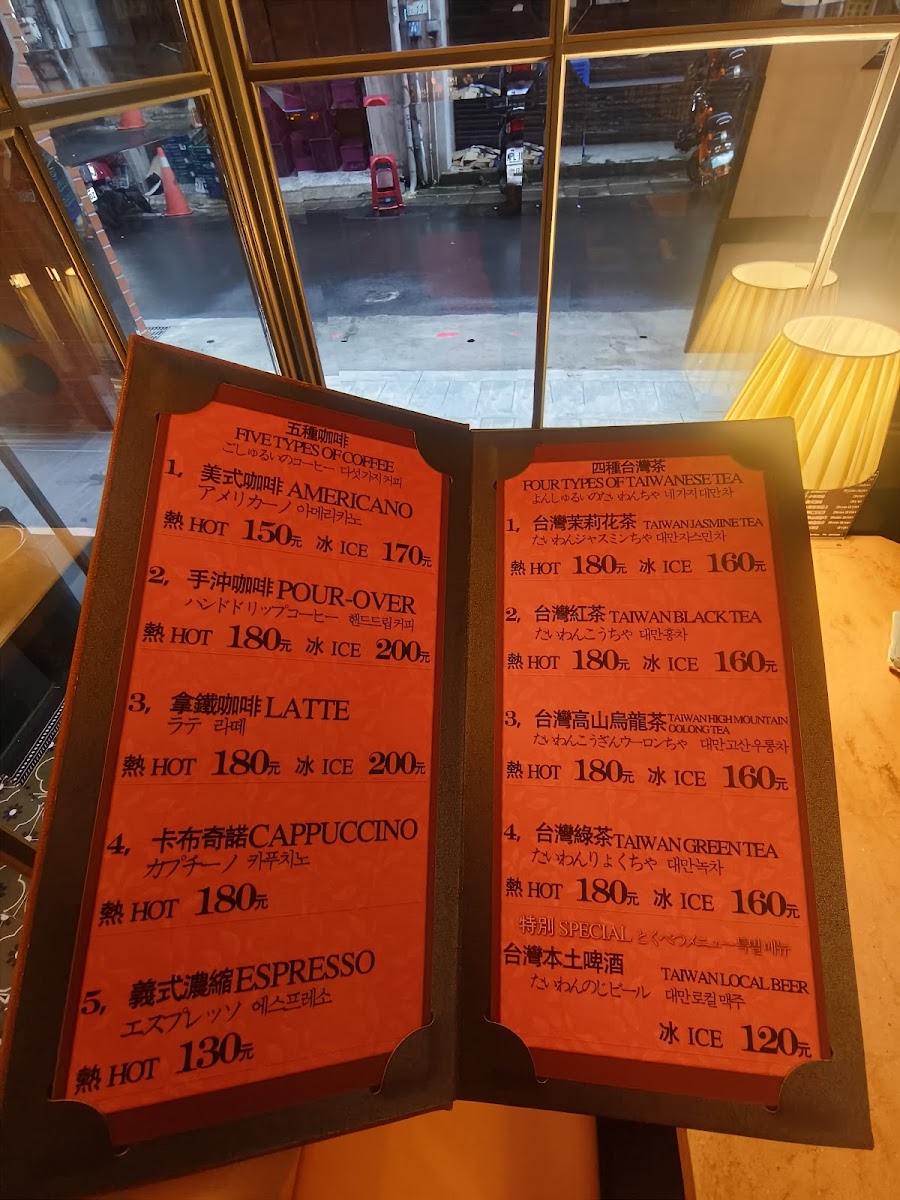 五種咖啡
FIVE TYPES OF COFFEE
ごしゅるいのコーヒー 다섯가지커피
1, 美式咖啡 AMERICANO
アメリカーノ 아메리카노
熱 HOT 150元 冰 ICE 170元
2, 手沖咖啡 POUR-OVER
ハンドドリップコーヒー 핸드드립커피
熱 HOT 180元 冰 ICE 200元
3, 拿鐵咖啡 LATTE
ラテ 라떼
熱 HOT 180元 冰 ICE 200元
4, 卡布奇諾 CAPPUCCINO
カプチーノ 카푸치노
熱 HOT 180元
5, 義式濃縮 ESPRESSO
エスプレッソ 에스프레소
熱 HOT 130元
四種台灣茶
FOUR TYPES OF TAIWANESE TEA
よんしゅるいのたいわんちゃ 네가지대만차
1, 台灣茉莉花茶 TAIWAN JASMINE TEA
たいわんジャスミンちゃ 대만자스민차
熱 HOT 180元 冰 ICE 160元
2, 台灣紅茶 TAIWAN BLACK TEA
たいわんこうちゃ 대만홍차
熱 HOT 180元 冰 ICE 160元
3, 台灣高山烏龍茶 TAIWAN HIGH MOUNTAIN
OOLONG TEA
たいわんこうざんウーロンちゃ 대만고산우롱차
熱 HOT 180元 冰 ICE 160元
4, 台灣綠茶 TAIWAN GREEN TEA
たいわんりょくちゃ 대만녹차
熱 HOT 180元 冰 ICE 160元
特別 SPECIAL とくべつメニュー 특별 메뉴
台灣本土啤酒 TAIWAN LOCAL BEER
たいわんのじビール 대만로컬 맥주
冰 ICE 120元